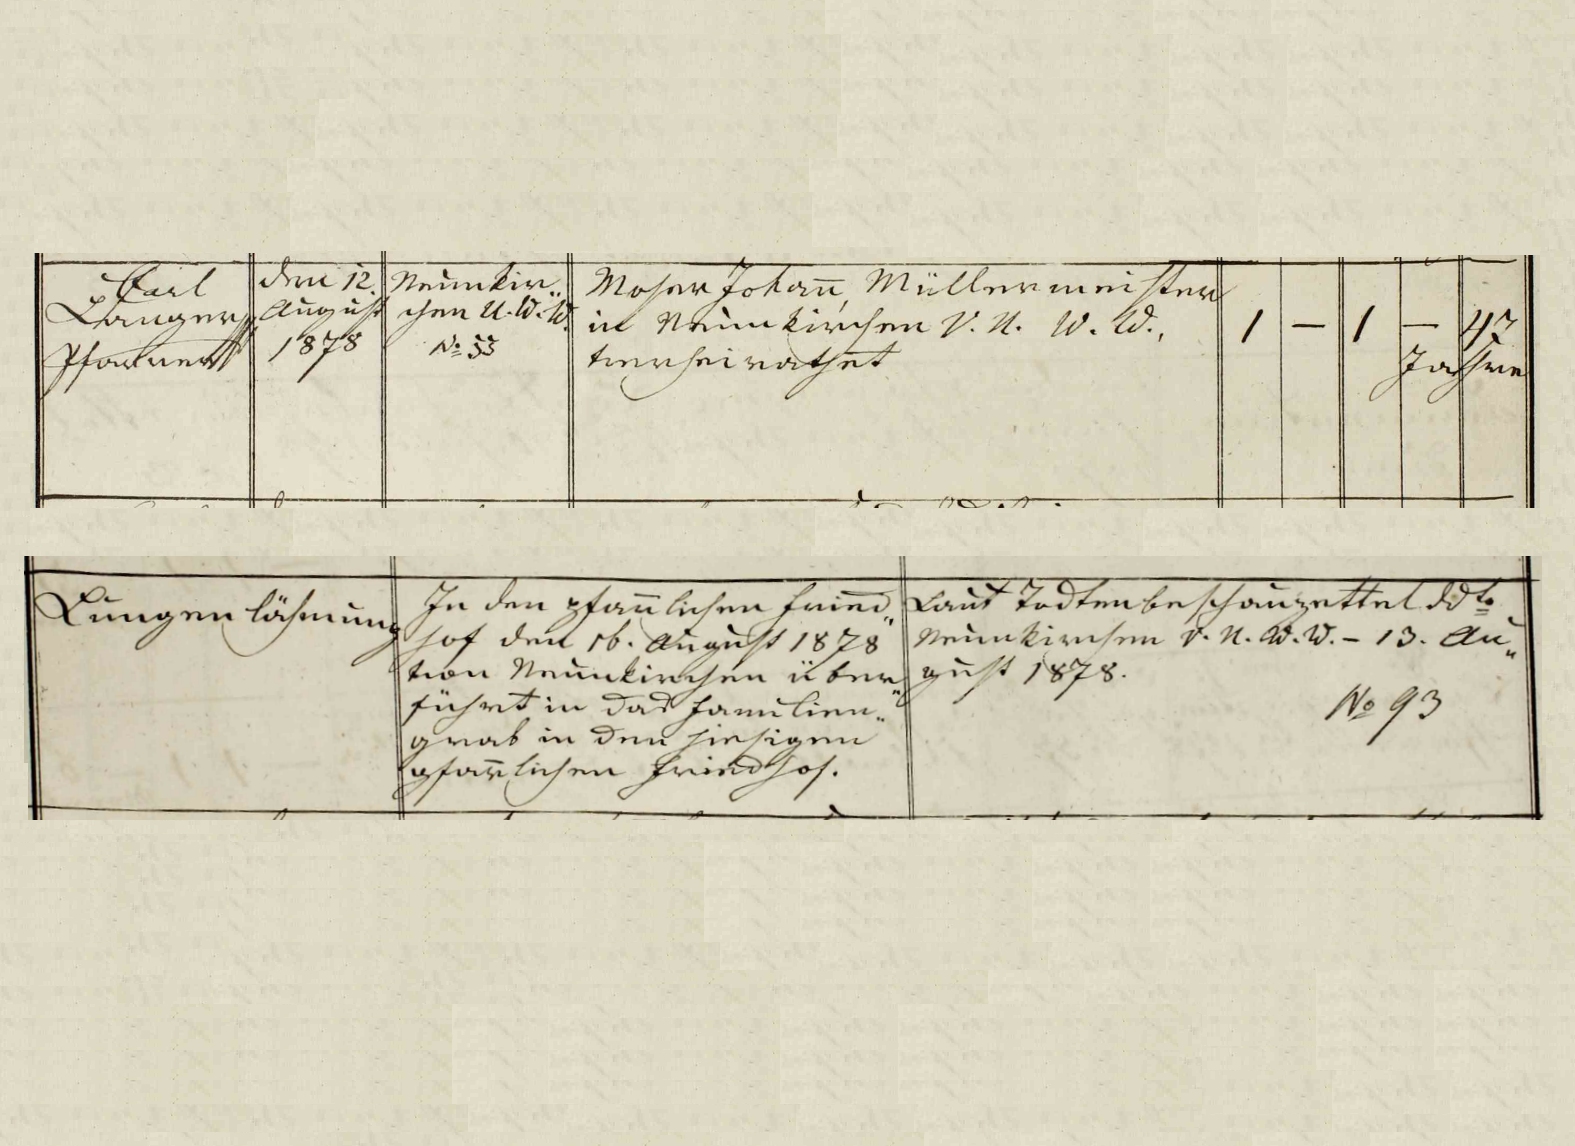 Carl
Langer
Pfarrer
den 12.
August
1878
Neunkir„
chen U. W. W.
No 53
Moser Johann, Müllermeister
in Neunkirchen V. U. W. W.,
verheirathet
1 — 1 — 47
Jahre
Lungenlähmung
In den pfarrlichen Fried„
hof den 16. August 1878
von Neunkirchen über„
führt in das Familien„
grab in den hiesigen
pfarrlichen Friedhof.
Laut Todtenbeschauzettel ddto
Neunkirchen V. U. W. W. – 13. Au„
gust 1878.
No 93